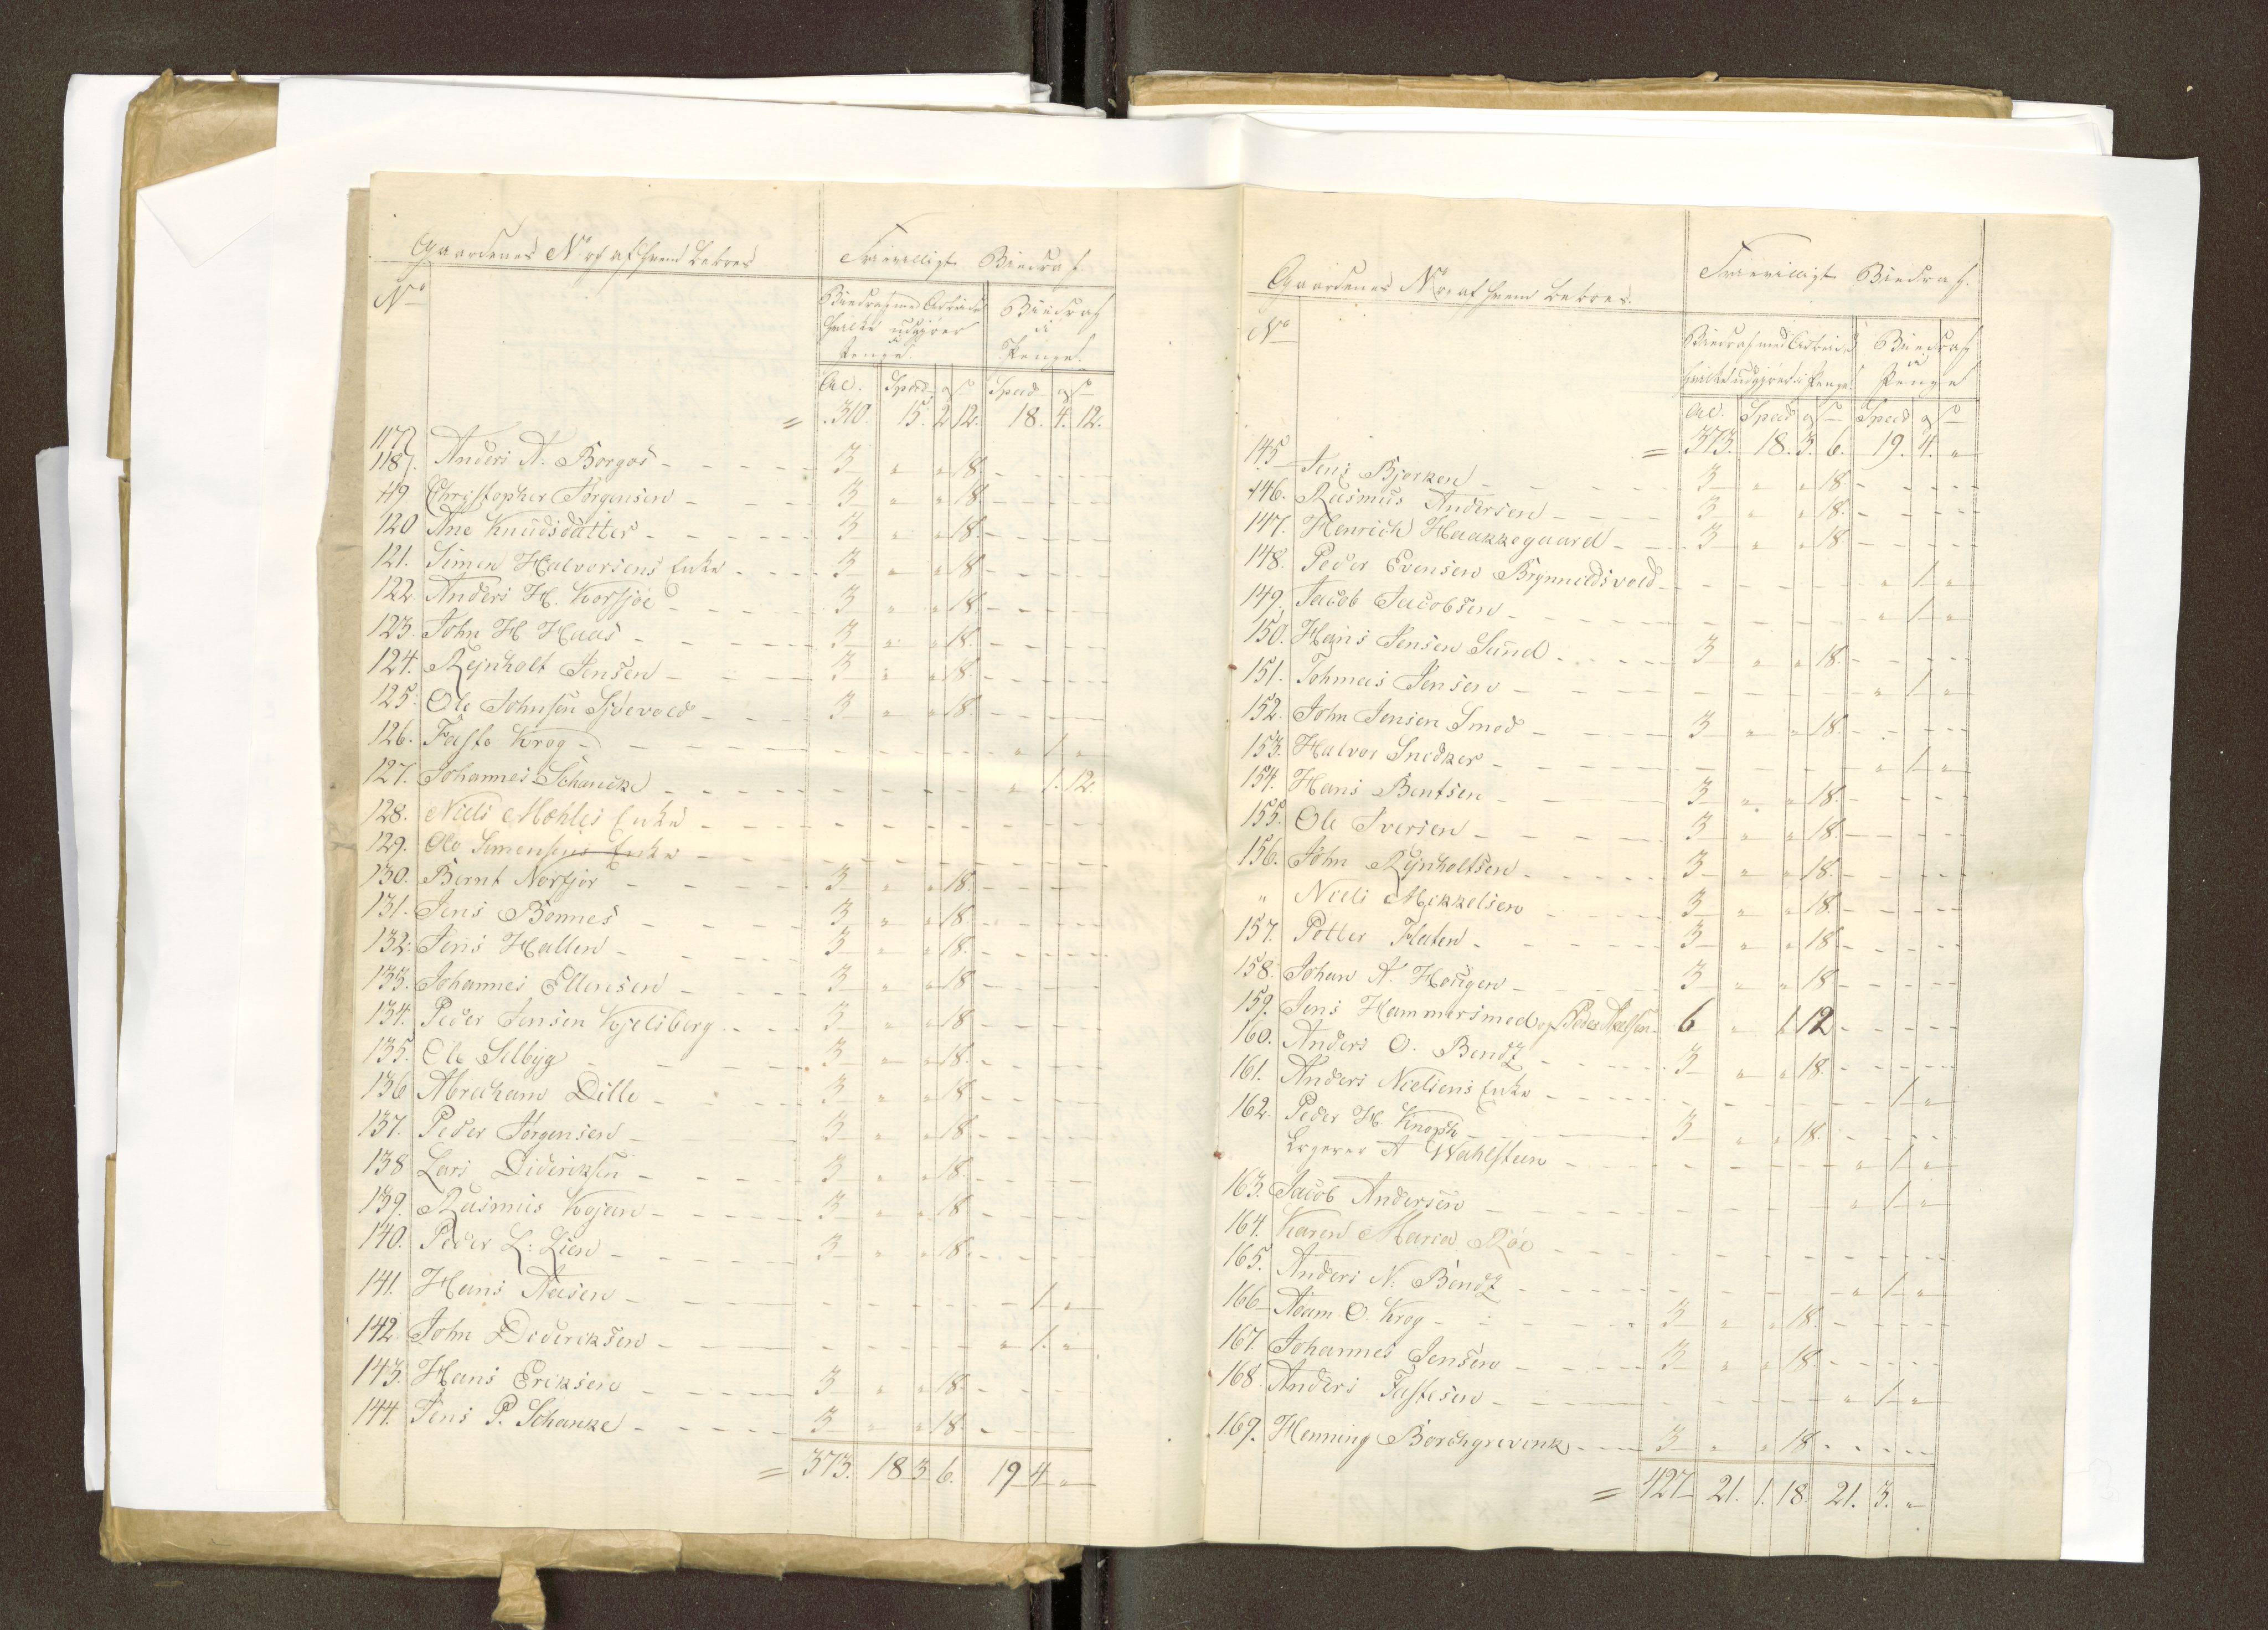 Gaardenes No og af hvem beboes
Frievilligt Biedrag
No
Biedrag med Arbeide
hvilke udgjører
i
Penge.
Biedrag
i
Penge.
Al. Specd. ort s Specd ort s
= 310. 15. 2 12. 18. 4. 12.
117 }
118 } Anders A. Borgos - - - - 3 " " 18. - - -
119. Christopher Jørgensen - - 3 " " 18 - - -
120 Ane Knudsdatter - - - - 3 " " 18. - - -
121. Simen Halvorsens Enke - - - 3 " " 18 - - -
122. Anders H. Korsjoe - - - 3 " " 18 - - -
123. John H Haas - - - 3 " " 18. - - -
124. Rejnholt Jensen - - - 3 " " 18. - - -
125. Ole Johnsen Sjøevold - - - 3 " " 18. - - -
126. Faste Krog - - - - " 1. "
127. Johannes Schancke - - - - " 1. 12.
128. Niels Mæhles Enke - - - -
129. Ole Simensens Enke - - - -
130. Bernt Norsjor - - - 3 " " 18. - - -
131. Jens Bonnes - - - 3 " " 18. - - -
132. Jens Hallen - - - 3 " " 18. - - -
133. Johannes Ellensen - - - 3 " " 18 - - -
134. Peder Jensen Kjelsberg - - - 3 " " 18 - - -
135. Ole Selbyg - - - 3 " " 18. - - -
136 Abraham Dille - - - 3 " " 18 - - -
137. Peder Jørgensen - - - 3 " " 18. - - -
138 Lars Dideriksen - - - 3 " " 18. - - -
139. Rasmus Kojan - - - 3 " " 18 - - -
140. Peder L. Lien - - - 3 " " 18. - - -
141. Hans Aasen - - - - 1. "
142. John Dedericksen - - - - " 1. "
143. Hans Eriksen - - - 3 " " 18. - - -
144. Jens P. Schanke - - - 3 " " 18. - - -
= 373. 18 3 6. 19 4 "
Gaardenes No og af hvem beboes.
Frievilligt Biedrag.
No
Biedrag med Arbeide
hvilke udgjører i Penge.
Biedrag
i
Penge
Al. Specd ort s Specd ort s
= 373. 18. 3. 6. 19. 4. "
145 Jens Bjorken - - - 3 " " 18 - - -
146. Rasmus Andersen - - - 3 " " 18. - - -
147. Henrich Haakkegaard - - 3 " " 18 - - -
148. Peder Evensen Brynnildsvold - - - " 1. "
149. Jacob Jacobsen - - - - " 1 "
150. Hans Jensen Sund - - - 3 " " 18. - - -
151. Tohmas Jensen - - - - " 1 "
152. John Jensen Smed - - - 3 " " 18. - - -
153. Halvor Snedker - - - - " 1 "
154. Hans Bentsen - - - 3 " " 18. - - -
155. Ole Iversen - - - 3 " " 18. - - -
156. John Rejnholtsen - - - 3 " " 18. - - -
" Niels Mikkelsen - - - 3 " " 18. - - -
157. Petter Flaten - - - 3 " " 18 - - -
158. Johan A. Hougen - - - 3 " " 18 - - -
159. Jens Hammersmed og Peder Axelsen 6 " 1. 12 - - -
160. Anders O. Bendz - - - 3 " " 18. - - -
161. Anders Nielsens Enke - - - - 1 "
162. Peder H. Knoph - - - 3 " " 18. - - -
Logerer A Wahlsteen - - - - " 1 "
163. Jacob Andersen - - - - " 1 "
164. Karen Maria Röe - - - -
165. Anders N. Bendz - - - - " 1 "
166 Adam O. Krog - - - 3 " " 18. - - -
167. Johannes Jensen - - - 3 " " 18. - - -
168 Anders Fastesen - - - - " 1 "
169. Henning Borchgrevink - - - 3 " " 18 - - -
= 427 21. 1. 18. 21. 3. "